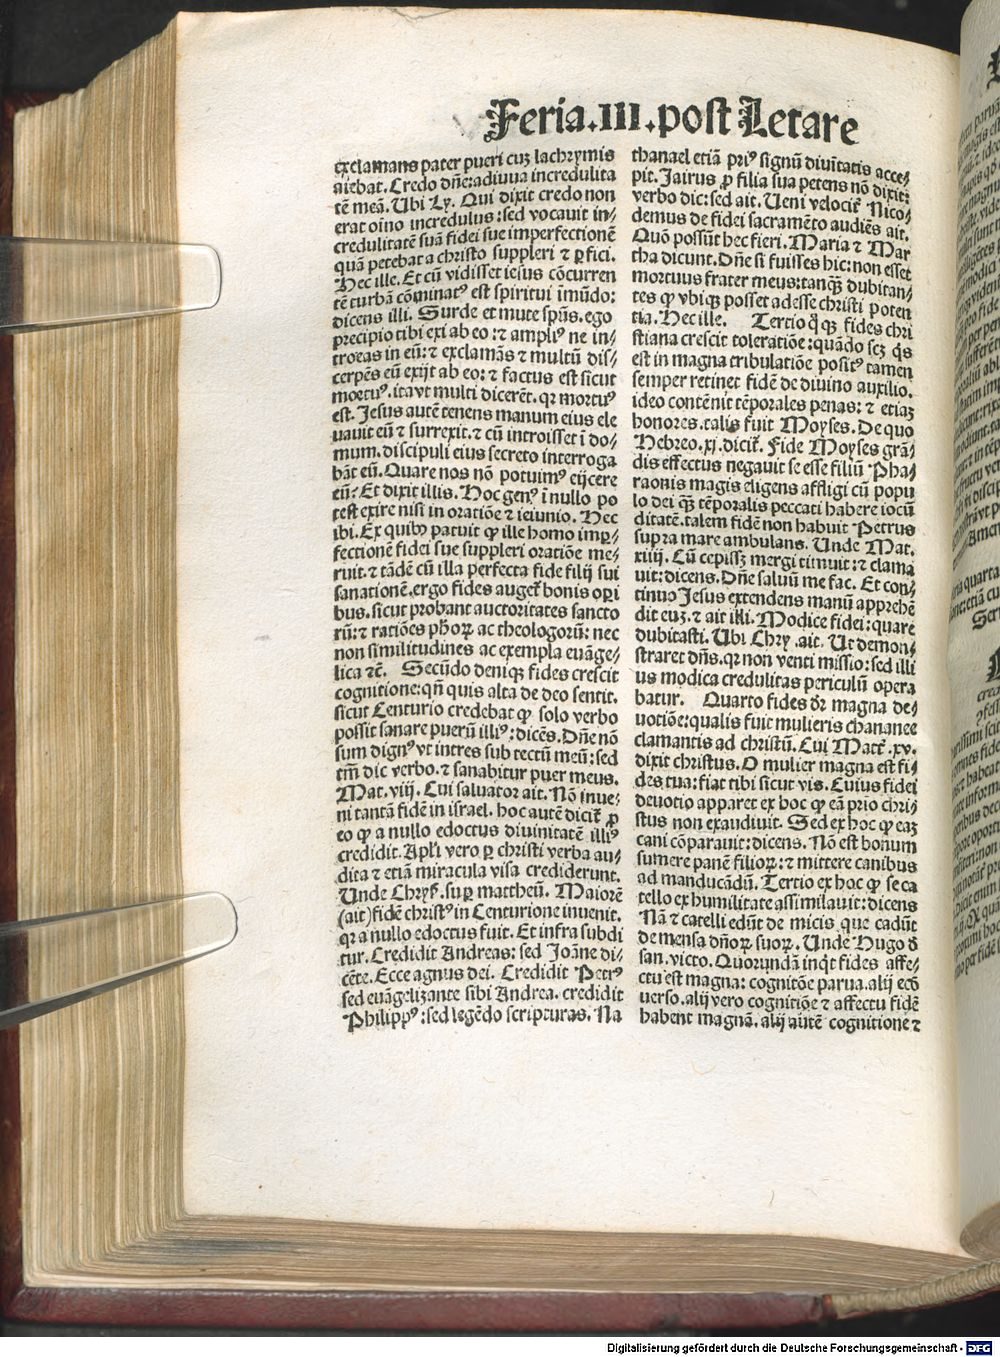 Feria.III.post Letare
exclamans pater pueri cuȝ lachrymis
aiebat. Credo dñe: adiuua incredulita
tē meā. Ubi Ly. Qui dixit credo non
erat oīno incredulus: sed vocauit in⸗
credulitatē suā fidei sue imperfectionē
quā petebat a christo suppleri ⁊ ꝑfici.
Hec ille. Et cū vidisset iesus cōcurren
tē turbā cōminatꝰ est spiritui īmūdo:
dicens illi. Surde et mute spūs. ego
precipio tibi exi ab eo: ⁊ ampliꝰ ne in⸗
troeas in eū: ⁊ exclamās ⁊ multū dis⸗
cerpēs eū exijt ab eo: ⁊ factus est sicut
mortuꝰ. ita vt multi dicerēt. qꝛ mortuꝰ
est. Jesus autē tenens manum eius ele
uauit eū ⁊ surrexit. ⁊ cū introisset ī do⸗
mum. discipuli eius secreto interroga
bāt eū. Quare nos nō potuimꝰ eijcere
eū: Et dixit illis. Hoc genꝰ ī nullo po
test exire nisi in oratiōe ⁊ ieiunio. Hec
ibi. Ex quibꝰ patuit ꝙ ille homo impꝑ⸗
fectionē fidei sue suppleri oratiōe me⸗
ruit. ⁊ tādē cū illa perfecta fide filij sui
sanationē. ergo fides auget̄ bonis oꝑi
bus. sicut probant auctoritates sancto
rū: ⁊ ratiōes ph̄oꝝ ac theologorū: nec
non similitudines ac exempla euāge⸗
lica ⁊c̄. Secūdo deniqȝ fides crescit
cognitione: qñ quis alta de deo sentit.
sicut Centurio credebat ꝙ solo verbo
possit sanare puerū illiꝰ: dicēs. Dñe nō
sum dignꝰ vt intres sub tectū meū: sed
tm̄ dic verbo. ⁊ sanabitur puer meus.
Mat. viij. Cui saluator ait. Nō inue⸗
ni tantā fidē in israel. hoc autē dicit̄ ꝓ
eo ꝙ a nullo edoctus diuinitatē illiꝰ
credidit. Apl̄i vero ꝑ christi verba au⸗
dita ⁊ etiā miracula visa crediderunt.
Unde Chrys. suꝑ mattheū. Maiorē
(ait) fidē christꝰ in Centurione inuenit.
qꝛ a nullo edoctus fuit. Et infra subdi
tur. Credidit Andreas: sed Joāne di⸗
cēte. Ecce agnus dei. Credidit Petrꝰ
sed euāgelizante sibi Andrea. credidit
Philippꝰ: sed legēdo scripturas. Na
thanael etiā priꝰ signū diuītatis acce⸗
pit. Jairus ꝓ filia sua petens nō dixit:
verbo dic: sed ait. Ueni velocit̄. Nico⸗
demus de fidei sacramēto audiēs ait.
Quō possūt hec fieri. Maria ⁊ Mar
tha dicunt. Dñe si fuisses hic: non esset
mortuus frater meus: tanqȝ dubitan⸗
tes ꝙ vbiqȝ posset adesse christi poten
tia. Hec ille. Tertio fides chri
stiana crescit toleratiōe: quādo scȝ qs
est in magna tribulatiōe positꝰ tamen
semper retinet fidē de diuino auxilio.
ideo contēnit tēporales penas: ⁊ etiaȝ
honores. talis fuit Moyses. De quo
Hebreo. xj. dicit̄. Fide Moyses grā⸗
dis effectus negauit se esse filiū Pha⸗
raonis magis eligens affligi cū popu
lo dei qȝ tēporalis peccati habere iocū
ditatē. talem fidē non habuit Petrus
supra mare ambulans. Unde Mat.
xiiij. Cū cepissȝ mergi timuit: ⁊ clama
uit: dicens. Dñe saluū me fac. Et con⸗
tinuo Jesus extendens manū apprehē
dit euȝ. ⁊ ait illi. Modice fidei: quare
dubitasti. Ubi Chry. ait. Ut demon⸗
straret dñs. qꝛ non venti missio: sed illi
us modica credulitas periculū opera
batur. Quarto fides dr̄ magna de⸗
uotiōe: qualis fuit mulieris chananee
clamantis ad christū. Cui Matt̄. xv.
dixit christus. O mulier magna est fi⸗
des tua: fiat tibi sicut vis. Cuius fidei
deuotio apparet ex hoc ꝙ eā prio chri⸗
stus non exaudiuit. Sed ex hoc ꝙ eaȝ
cani cōparauit: dicens. Nō est bonum
sumere panē filioꝝ: ⁊ mittere canibus
ad manducādū. Tertio ex hoc ꝙ se ca
tello ex humilitate assimilauit: dicens
Nā ⁊ catelli edūt de micis que cadūt
de mensa dñoꝝ suoꝝ. Unde Hugo đ
san. victo. Quorundā inqt fides affe⸗
ctu est magna: cognitōe parua. alij ecō
uerso. alij vero cognitiōe ⁊ affectu fidē
habent magnā. alij autē cognitione ⁊
Digitalisierung gefördert durch die Deutsche Forschungsgemeinschaft - DFG